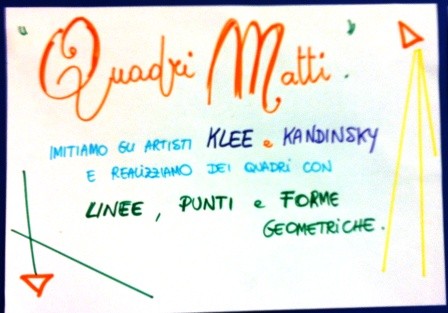 "Quadri Matti".
IMITIAMO GLI ARTISTI KLEE e KANDINSKY
E REALIZZIAMO DEI QUADRI CON
LINEE, PUNTI e FORME
GEOMETRICHE.